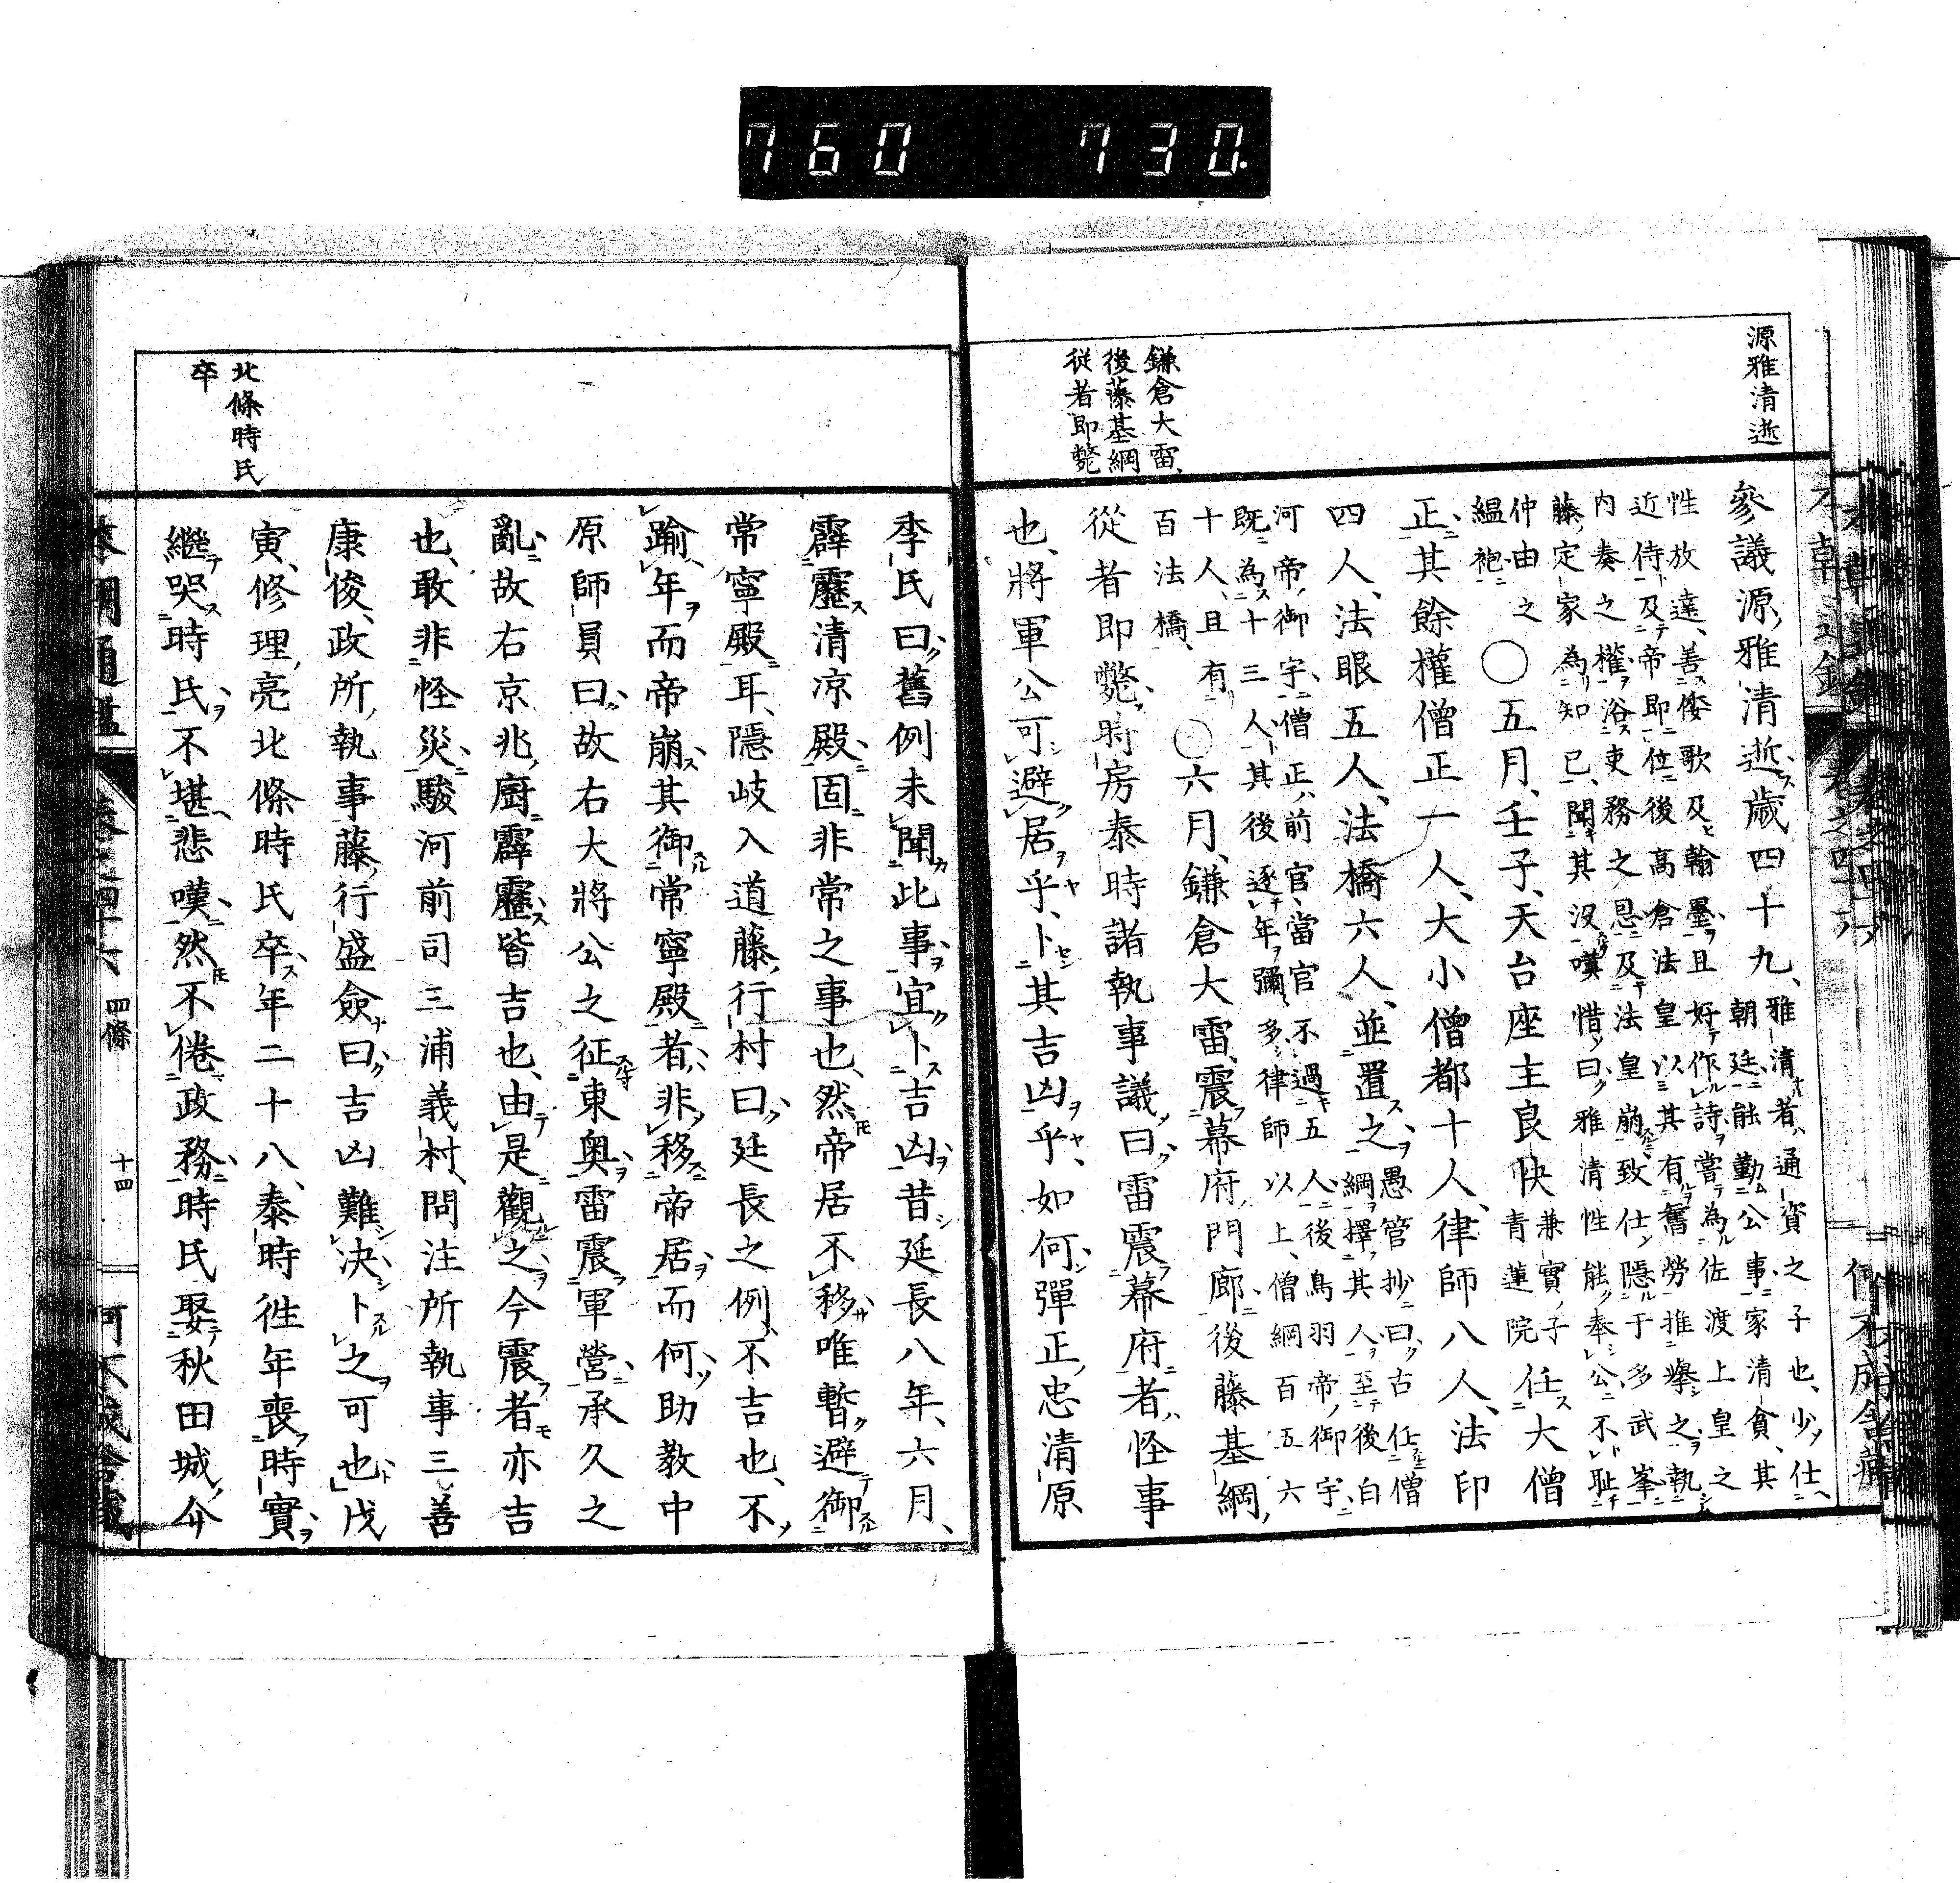 760 730.
源雅清逝
參議源雅清逝歲四十九、雅清者、通資之子也、少仕
朝廷、能勤公事、家清貧、其
性放達、善倭歌及翰墨、且好作詩、嘗為佐渡上皇之
近侍、及帝即位後、高倉法皇以其有舊勞、推擧之、執
内奏之權、浴吏務之恩、及法皇崩、致仕隱于多武峯、
藤定家為知己、聞其沒、嘆惜曰、雅清性能奉公、不耻
仲由之
縕袍
○五月、壬子、天台座主良快
兼實子
青蓮院
任大僧
正、其餘權僧正一人、大小僧都十人、律師八人、法印
四人、法眼五人、法橋六人、並置之、
愚管抄曰、古任僧
綱擇其人、至後白
河帝御宇、僧正前官當官不過五人、後鳥羽帝御宇、
既為十三人、其後逐年彌多、律師以上、僧綱百五六
十人、且有
百法橋、
○六月、鎌倉大雷、震幕府門廊、後藤基綱
從者即斃、時房泰時諸執事議曰、雷震幕府者、怪事
也、將軍公可避居乎、卜其吉凶乎、如何、彈正忠清原
鎌倉大雷、
後藤基綱
從者即斃
季氏曰、舊例未聞此事、宜卜吉凶、昔延長八年、六月、
霹靂清凉殿、固非常之事也、然帝居不移、唯暫避御
常寧殿耳、隱岐入道藤行村曰、延長之例、不吉也、不
踰年而帝崩、其御常寧殿者、非移帝居而何、助教中
原師員曰、故右大將公之征東奥、雷震軍營、承久之
亂、故右京兆廚霹靂、皆吉也、由是觀之、今震者亦吉
也、敢非怪災、駿河前司三浦義村、問注所執事三善
康俊、政所執事藤行盛僉曰、吉凶難決、卜之可也、戊
寅、修理亮北條時氏卒、年二十八、泰時徃年喪時實、
繼哭時氏、不堪悲嘆、然不倦政務、時氏娶秋田城介
北條時氏
卒
四條
十四